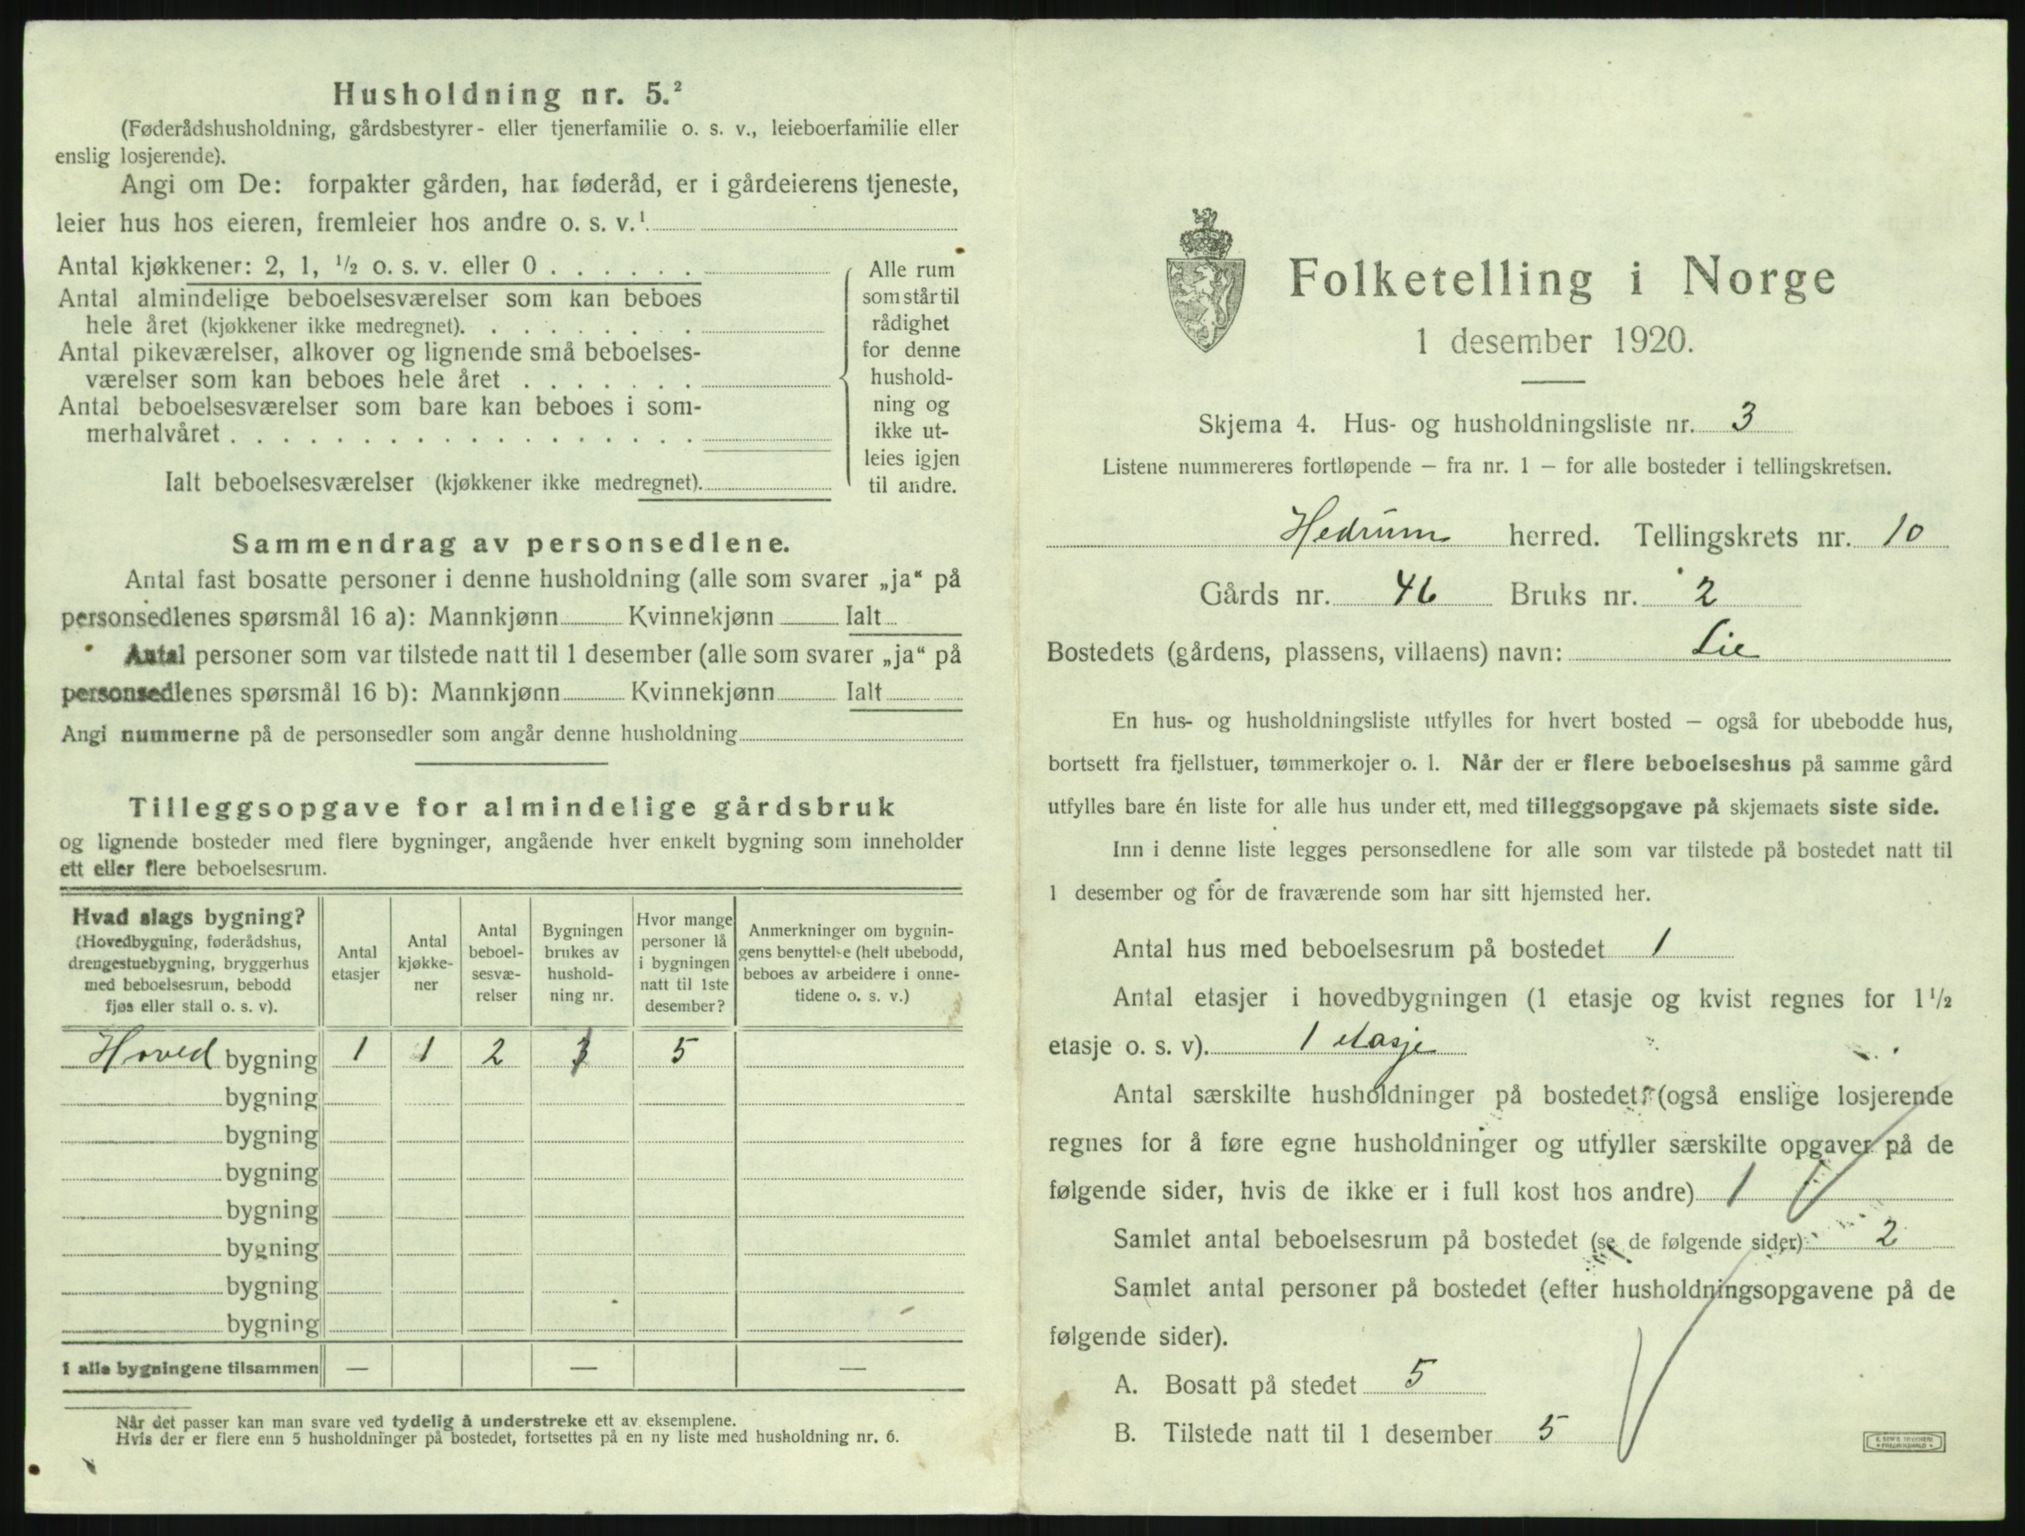 Husholdning nr. 5.²
(Føderådshusholdning, gårdsbestyrer- eller tjenerfamilie o. s. v., leieboerfamilie eller
enslig losjerende).
Angi om De: forpakter gården, har føderåd, er i gårdeierens tjeneste,
leier hus hos eieren, fremleier hos andre o. s. v.¹
Antal kjøkkener: 2, 1, ½ o. s. v. eller 0 . . . . . .
Antal almindelige beboelsesværelser som kan beboes
hele året (kjøkkener ikke medregnet). . . . . . . . .
Antal pikeværelser, alkover og lignende små beboelses-
værelser som kan beboes hele året . . . . . . .
Antal beboelsesværelser som bare kan beboes i som-
merhalvåret . . . . . . . . . . . . . . . . . .
Ialt beboelsesværelser (kjøkkener ikke medregnet).
Alle rum
som står til
rådighet
for denne
hushold-
ning og
ikke ut-
leies igjen
til andre.
Sammendrag av personsedlene.
Antal fast bosatte personer i denne husholdning (alle som svarer „ja“ på
personsedlenes spørsmål 16 a): Mannkjønn Kvinnekjønn Ialt
Antal personer som var tilstede natt til 1 desember (alle som svarer „ja“ på
personsedlenes spørsmål 16 b): Mannkjønn Kvinnekjønn Ialt
Angi nummerne på de personsedler som angår denne husholdning
Tilleggsopgave for almindelige gårdsbruk
og lignende bosteder med flere bygninger, angående hver enkelt bygning som inneholder
ett eller flere beboelsesrum.
Hvad slags bygning?
(Hovedbygning, føderådshus,
drengestuebygning, bryggerhus
med beboelsesrum, bebodd
fjøs eller stall o. s. v).
Antal
etasjer
Antal
kjøkke-
ner
Antal
beboel-
sesvæ-
relser
Bygningen
brukes av
hushold-
ning nr.
Hvor mange
personer lå
i bygningen
natt til 1ste
desember?
Anmerkninger om bygnin-
gens benyttelse (helt ubebodd,
beboes av arbeidere i onne-
tidene o. s. v.)
Hoved bygning 1 1 2 1 5
bygning
bygning
bygning
bygning
bygning
bygning
bygning
I alle bygningene tilsammen — — —
Når det passer kan man svare ved tydelig å understreke ett av eksemplene.
Hvis der er flere enn 5 husholdninger på bostedet, fortsettes på en ny liste med husholdning nr. 6.
Folketelling i Norge
1 desember 1920.
Skjema 4. Hus- og husholdningsliste nr. 3
Listene nummereres fortløpende – fra nr. 1 – for alle bosteder i tellingskretsen.
Hedrum herred. Tellingskrets nr. 10
Gårds nr. 46 Bruks nr. 2
Bostedets (gårdens, plassens, villaens) navn: Lie
En hus- og husholdningsliste utfylles for hvert bosted – også for ubebodde hus,
bortsett fra fjellstuer, tømmerkojer o. l. Når der er flere beboelseshus på samme gård
utfylles bare én liste for alle hus under ett, med tilleggsopgave på skjemaets siste side.
Inn i denne liste legges personsedlene for alle som var tilstede på bostedet natt til
1 desember og for de fraværende som har sitt hjemsted her.
Antal hus med beboelsesrum på bostedet 1
Antal etasjer i hovedbygningen (1 etasje og kvist regnes for 1 ½
etasje o. s. v). 1 etasje
Antal særskilte husholdninger på bostedet (også enslige losjerende
regnes for å føre egne husholdninger og utfyller særskilte opgaver på de
følgende sider, hvis de ikke er i full kost hos andre) 1
Samlet antal beboelsesrum på bostedet (se de følgende sider) 2
Samlet antal personer på bostedet (efter husholdningsopgavene på de
følgende sider).
A. Bosatt på stedet 5
B. Tilstede natt til 1 desember 5